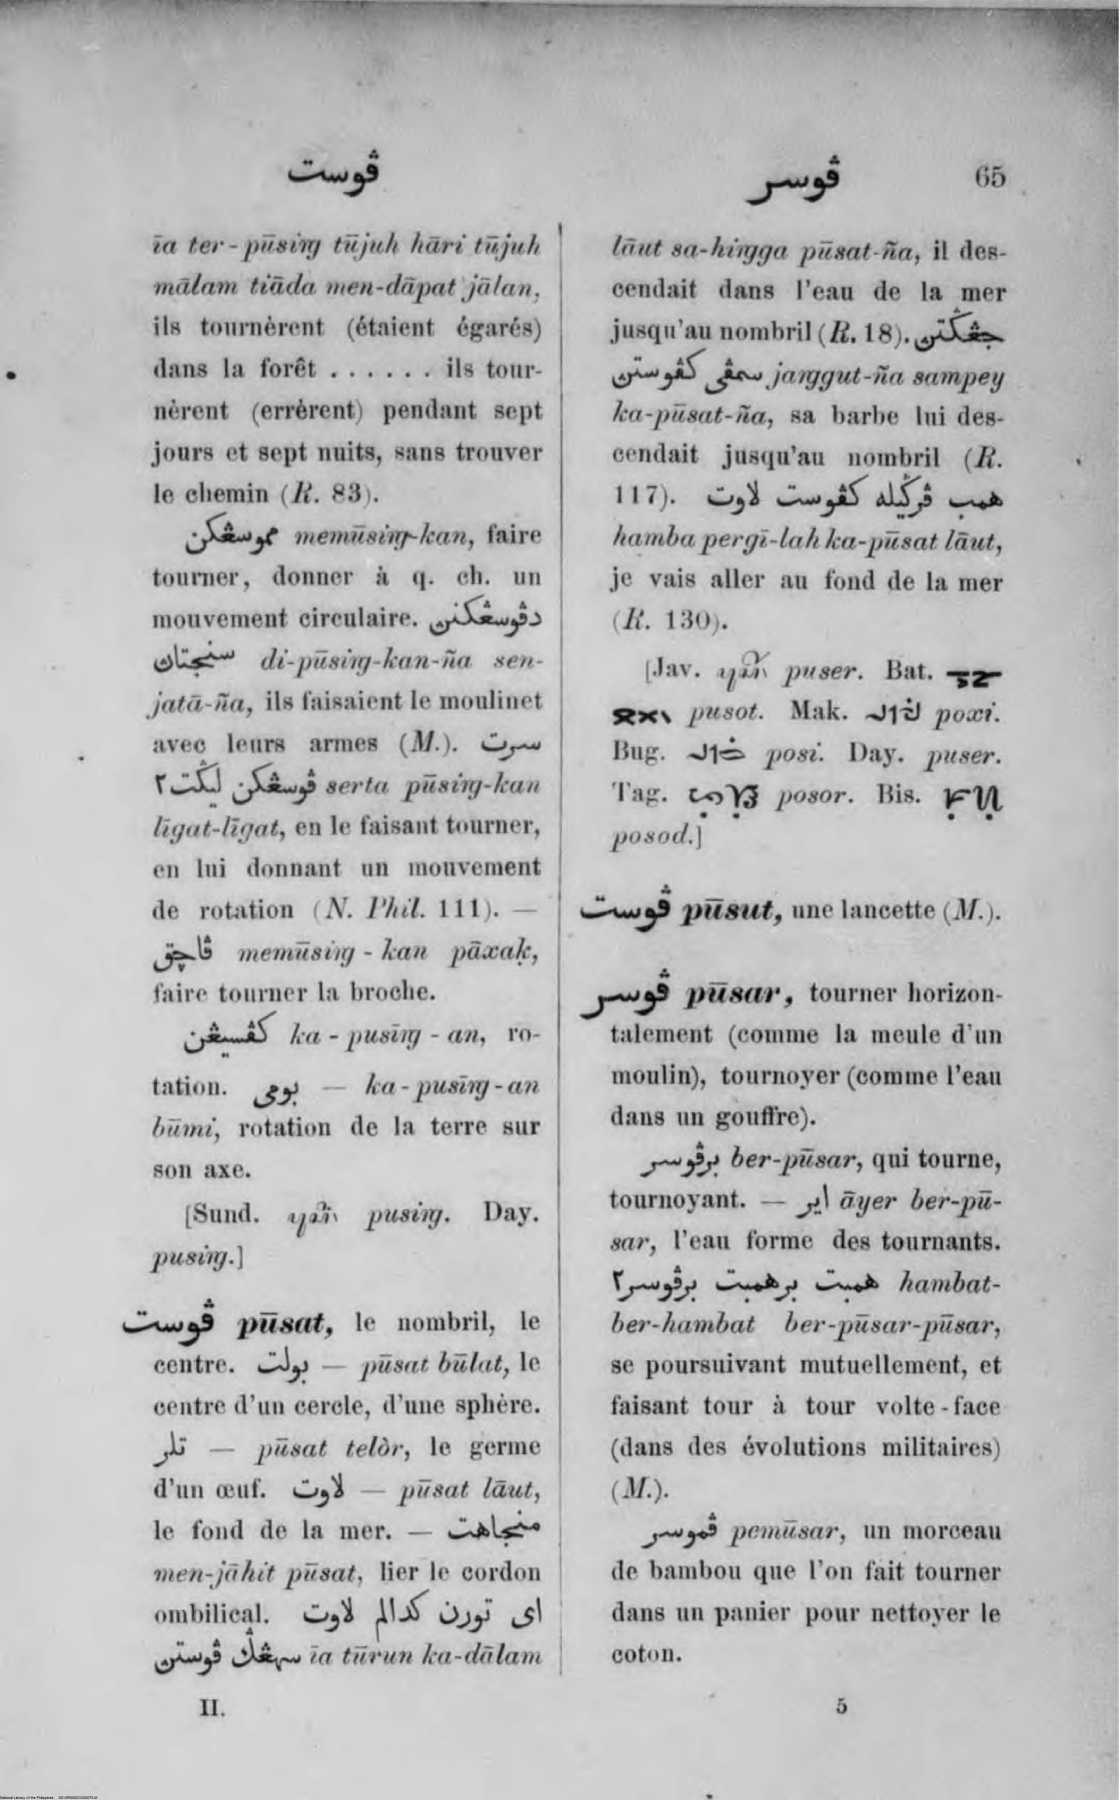 ڤوست
ڤوسر 65
īa ter-pūsiṅg tūjuh hāri tūjuh
mālam tiāda men-dāpat jālan,
ils tournèrent (étaient égarés)
dans la forêt . . . . . . ils tour-
nèrent (errèrent) pendant sept
jours et sept nuits, sans trouver
le chemin (R. 83).
مموسڠكن memūsiṅg-kan, faire
tourner, donner à q. ch. un
mouvement circulaire. دڤوسڠكنن
سنجتاڽ di-pūsiṅg-kan-ña sen-
jatā-ña, ils faisaient le moulinet
avec leurs armes (M.). سرت
ڤوسڠكن ليڬت٢ serta pūsiṅg-kan
līgat-līgat, en le faisant tourner,
en lui donnant un mouvement
de rotation (N. Phil. 111). —
ڤاچق memūsiṅg-kan pāxaḳ,
faire tourner la broche.
كڤسيڠن ka-pusīṅg-an, ro-
tation. بومي — ka-pusīṅg-an
būmi, rotation de la terre sur
son axe.
[Sund. pusiṅg. Day.
pusiṅg.]
ڤوست pūsat, le nombril, le
centre. بولت — pūsat būlat, le
centre d'un cercle, d'une sphère.
تلر — pūsat telòr, le germe
d'un œuf. لاوت — pūsat lāut,
le fond de la mer. — منجاهت
men-jāhit pūsat, lier le cordon
ombilical. اى تورن كدالم لاوت
سهڠڬ ڤوستن īa tūrun ka-dālam
II.
lāut sa-hiṅgga pūsat-ña, il des-
cendait dans l'eau de la mer
jusqu'au nombril (R. 18). جڠڬتن
سمڤي كڤوستن jaṅggut-ña sampey
ka-pūsat-ña, sa barbe lui des-
cendait jusqu'au nombril (R.
117). همب ڤرڬيله كڤوست لاوت
hamba pergī-lah ka-pūsat lāut,
je vais aller au fond de la mer
(R. 130).
[Jav. puser. Bat.
pusot. Mak. poxi.
Bug. posi. Day. puser.
Tag. posor. Bis.
posod.]
ڤوست pūsut, une lancette (M.).
ڤوسر pūsar, tourner horizon-
talement (comme la meule d'un
moulin), tournoyer (comme l'eau
dans un gouffre).
برڤوسر ber-pūsar, qui tourne,
tournoyant. — اير āyer ber-pū-
sar, l'eau forme des tournants.
همبت برهمبت برڤوسر٢ hambat-
ber-hambat ber-pūsar-pūsar,
se poursuivant mutuellement, et
faisant tour à tour volte-face
(dans des évolutions militaires)
(M.).
ڤموسر pemūsar, un morceau
de bambou que l'on fait tourner
dans un panier pour nettoyer le
coton.
5